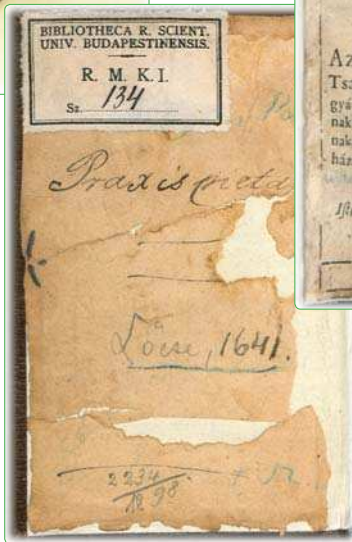 BIBLIOTHECA R. SCIENT.
UNIV. BUDAPESTINENSIS.
R. M. K. I.
Sz. 134
Praxis pieta
Lőcse, 1641.
2234
1898
Az
Tsz
gyá
nak
nak
ház